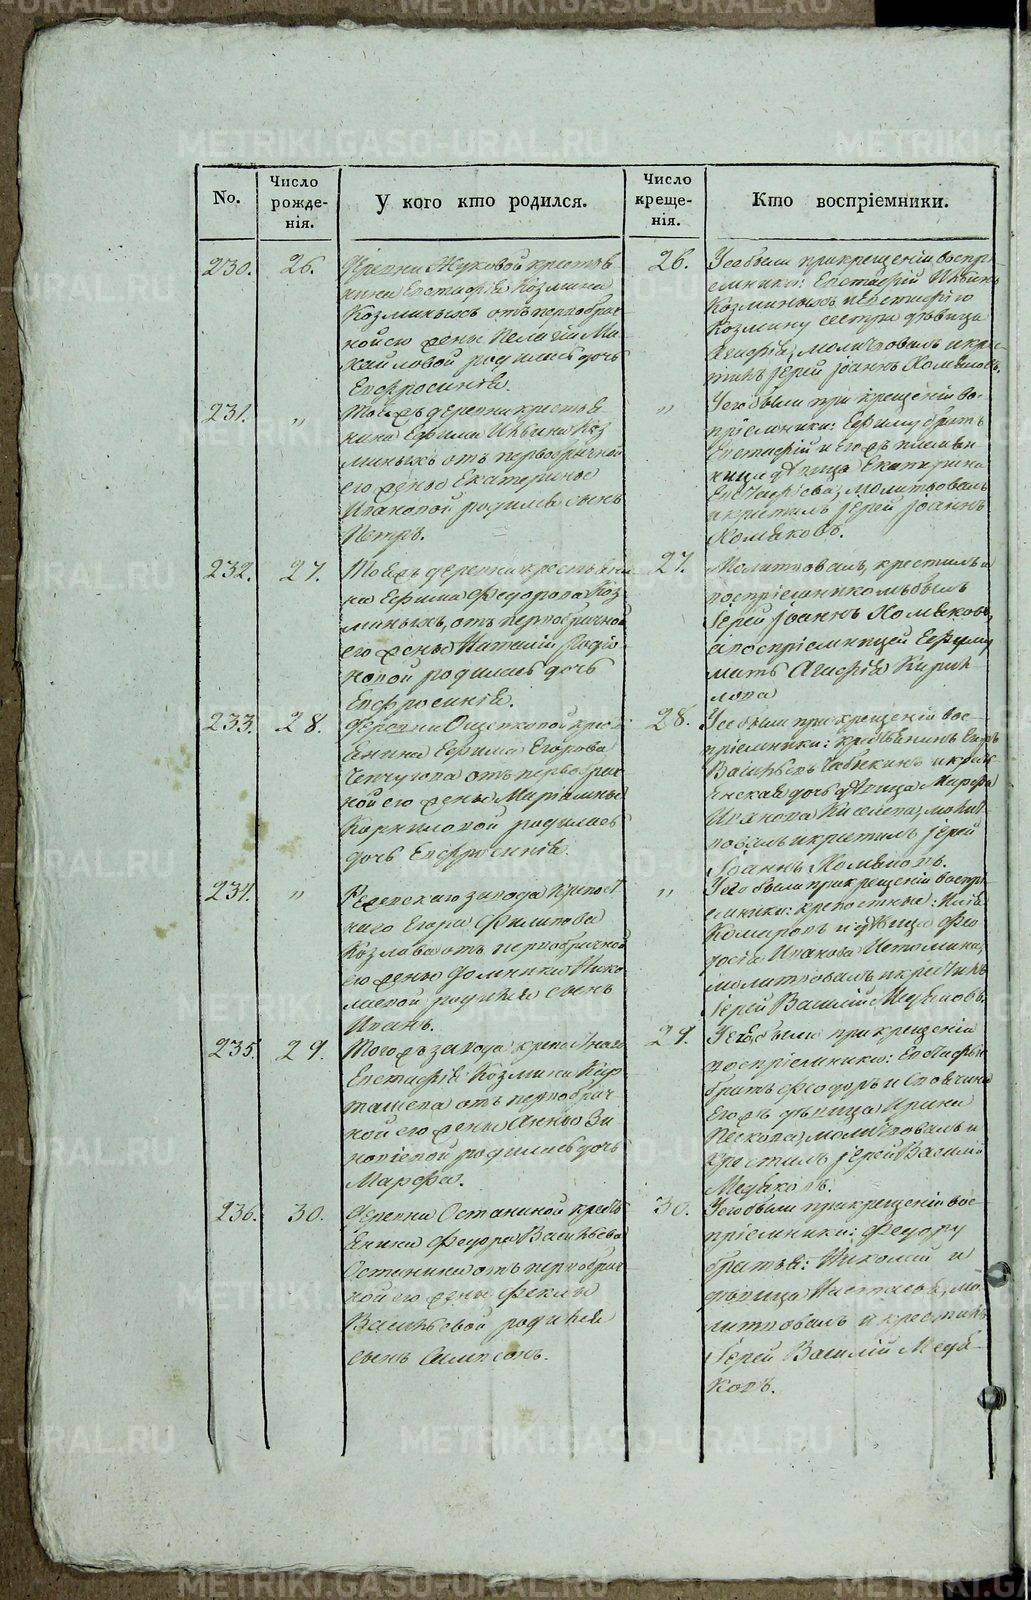 No.
Число рожде-
нія.
У кого кто родился.
Число креще-
нія.
Кто воспріемники.
230.
26.
Деревни Жуковой кресть
янина Евстафія Козмина
Козминыхъ отъ первобрач
ной его жены Пелагіи Ми
хайловой родилась дочь
Евфросинія.
26.
Уея были при крещеніи воспрі
емники: Евстафій
Козминыхъ и Евстафію
Козмину сестра дѣвица
Агафія, молитвовалъ и кре
стилъ Іерей Іоаннъ Хомяковъ.
231.
"
Той жъ деревни крестья
нина Ефима Ивана Коз
миныхъ отъ первобрачной
его жены Екатерины
Ивановой родился сынъ
Петръ.
"
Уего были при крещеніи во-
спріемники: Ефиму братъ
Евстафій и его жъ племян
ница дѣвица Екатерина
Евстафіева, молитвовалъ
и крестилъ Іерей Іоаннъ
Хомяковъ.
232.
27.
Той жъ деревни крестьяни
на Ефима Федорова Коз
миныхъ, отъ первобрачной
его жены Наталіи Родіо
новой родилась дочь
Евфросинія.
27.
Молитвовалъ, крестилъ и
воспріемникомъ былъ
Іерей Іоаннъ Хомяковъ,
а воспріемницей Ефиму
мать Агафія Кирил
лова
233.
28.
Деревни Ощепковой крес
янина Ефима Егорова
отъ первобрач
ной его жены Маріамны
Корниловой родилась
дочь Евфросинія.
28.
Уея были при крещеніи вос-
пріемники: крестьянинъ Егоръ
Васильевъ и крест
янская дочь дѣвица Марфа
Иванова Киселева, молит
вовалъ и крестилъ Іерей
Іоаннъ Хомяковъ.
234.
"
Режевскаго завода крепост
наго Егора Филипова
Козлова отъ первобрачной
его жены Домники Нико
лаевой родился сынъ
Иванъ.
"
Уего были при крещеніи воспрі
емники: крепостные: Илья
Комаровъ и дѣвица Фео
досія Иванова Истомина,
молитвовалъ и крестилъ
Іерей Василій Медяковъ.
235.
29.
Того жъ завода крепостнаго
Евстафія Козмина Кар
ташева отъ первобрач
ной его жены Анны Зи
новіевой родилась дочь
Марфа.
29.
Уея были при крещеніи
воспріемники: Евстафью
братъ Феодоръ и
Егоръ дѣвица Ирина
Пескова, молитвовалъ и
крестилъ Іерей Василій
Медяковъ.
236.
30.
Деревни Останиной кресть
янина Федора Васильева
Останина отъ первобрач
ной его жены Феклы
Васильевой родился
сынъ Сампсонъ.
30.
Уего были при крещеніи вос-
пріемники: Федору
братья: Николай и
дѣвица Настасья, мо-
литвовалъ и крестилъ
Іерей Василій Медя-
ковъ.
METRIKI.GASO-URAL.RU